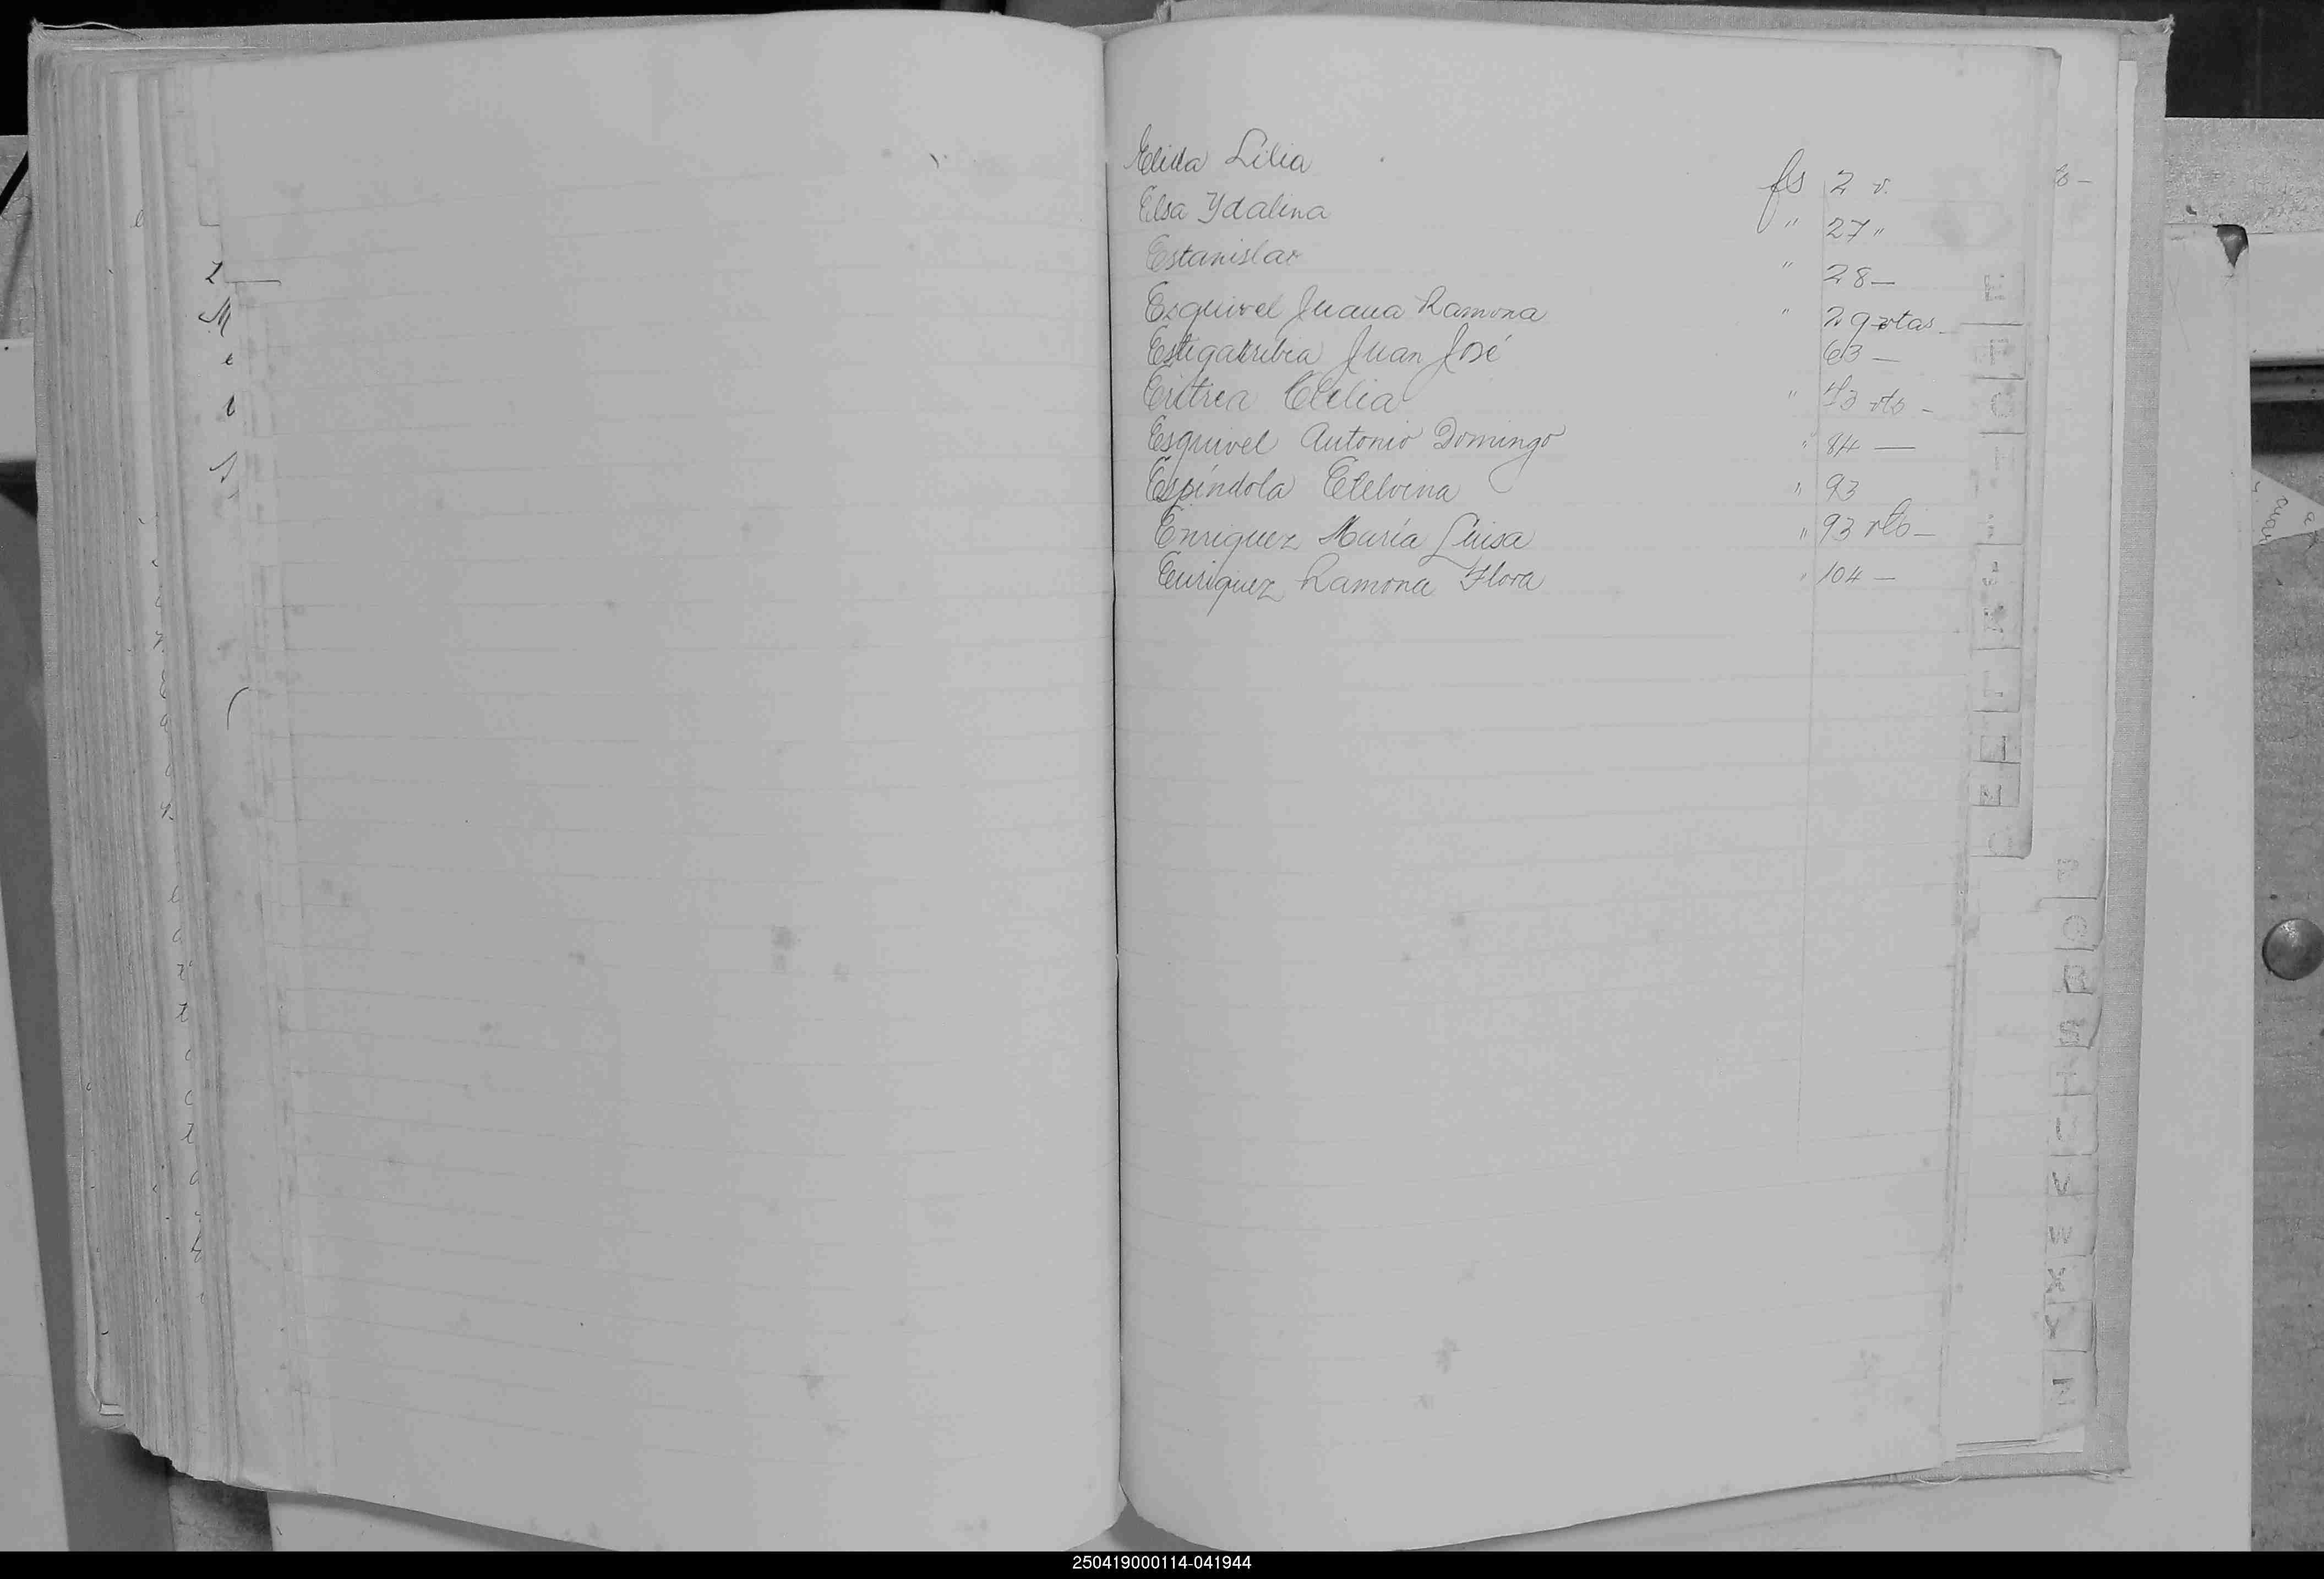 Elida Lilia fs 2 v.
Elsa Ydalina " 27 "
Estanislao " 28 —
Esquivel Juana Ramona " 29 vtas —
Estigarribia Juan José 63 —
Eritrea Clelia " vto —
Esquivel Antonio Domingo " 84 —
Espíndola Etelvina " 93
Enriquez María Luisa " 93 vto —
Enriquez Ramona Flora " 104 —
V
W
X
Y
250419000114-041944